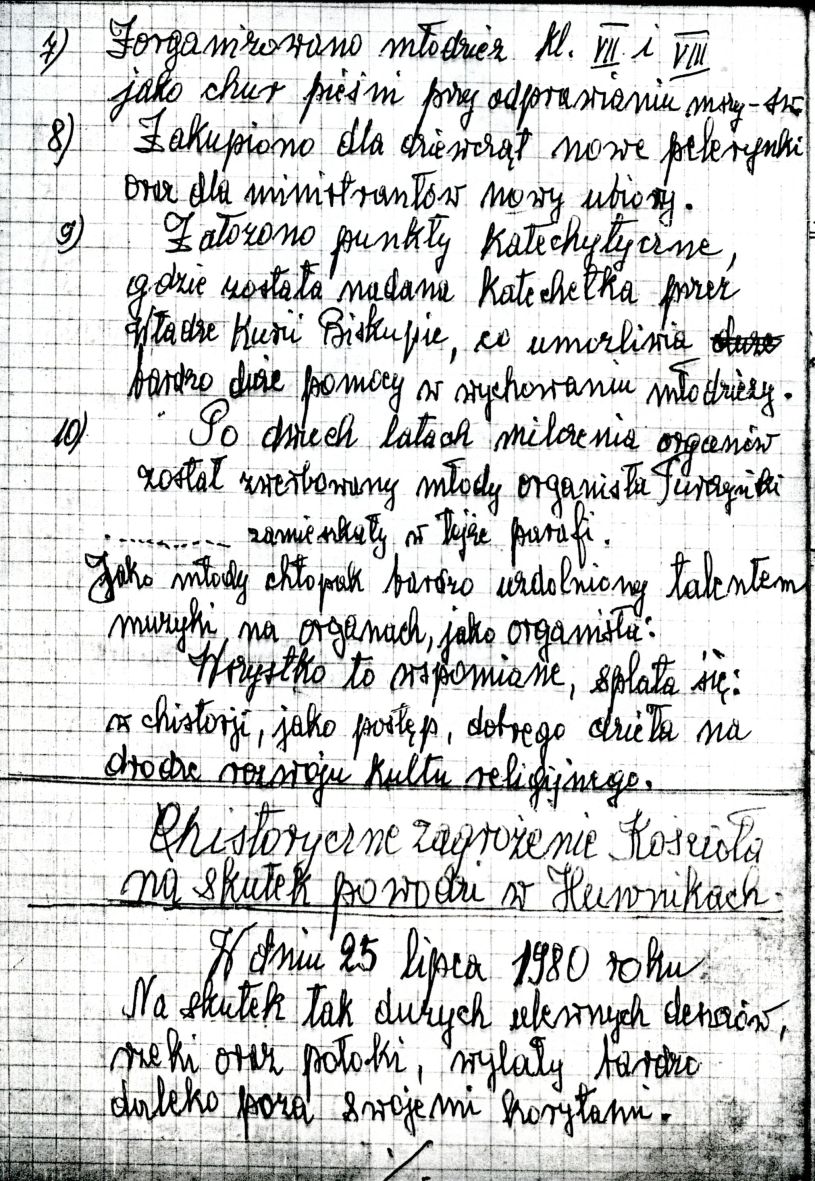 7) Zorganizowano młodzież kl. VII i VIII
jako chur pieśni przy odprawianiu mszy-św.
8) Zakupiono dla dziewcząt nowe pelerynki
oraz dla ministrantów nowy ubiory.
9) Założono punkty Katechytyczne,
gdzie została nadana Katechetka przez
Władze Kurii Biskupie, co umorzliwia
bardzo duże pomocy w wychowaniu młodzieży.
10) Po dwech latach milczenia organów
został zwerbowany młody organista
............... zamieszkały w tejże parafi.
Jako młody chłopak bardzo uzdolniony talentem
muzyki na organach, jako organista:
Wszystko to wspomiane, splata się:
w chistorji, jako postęp, dobrego dzieła na
drodze rozwoju Kultu religijnego.
Chistoryczne zagrożenie Kościoła
na skutek powodzi w Huwnikach.
W dniu 25 lipca 1980 roku
Na skutek tak dużych ulewnych deszczów,
rzeki oraz potoki, wylały bardzo
daleko poza swojemi korytami.
./.